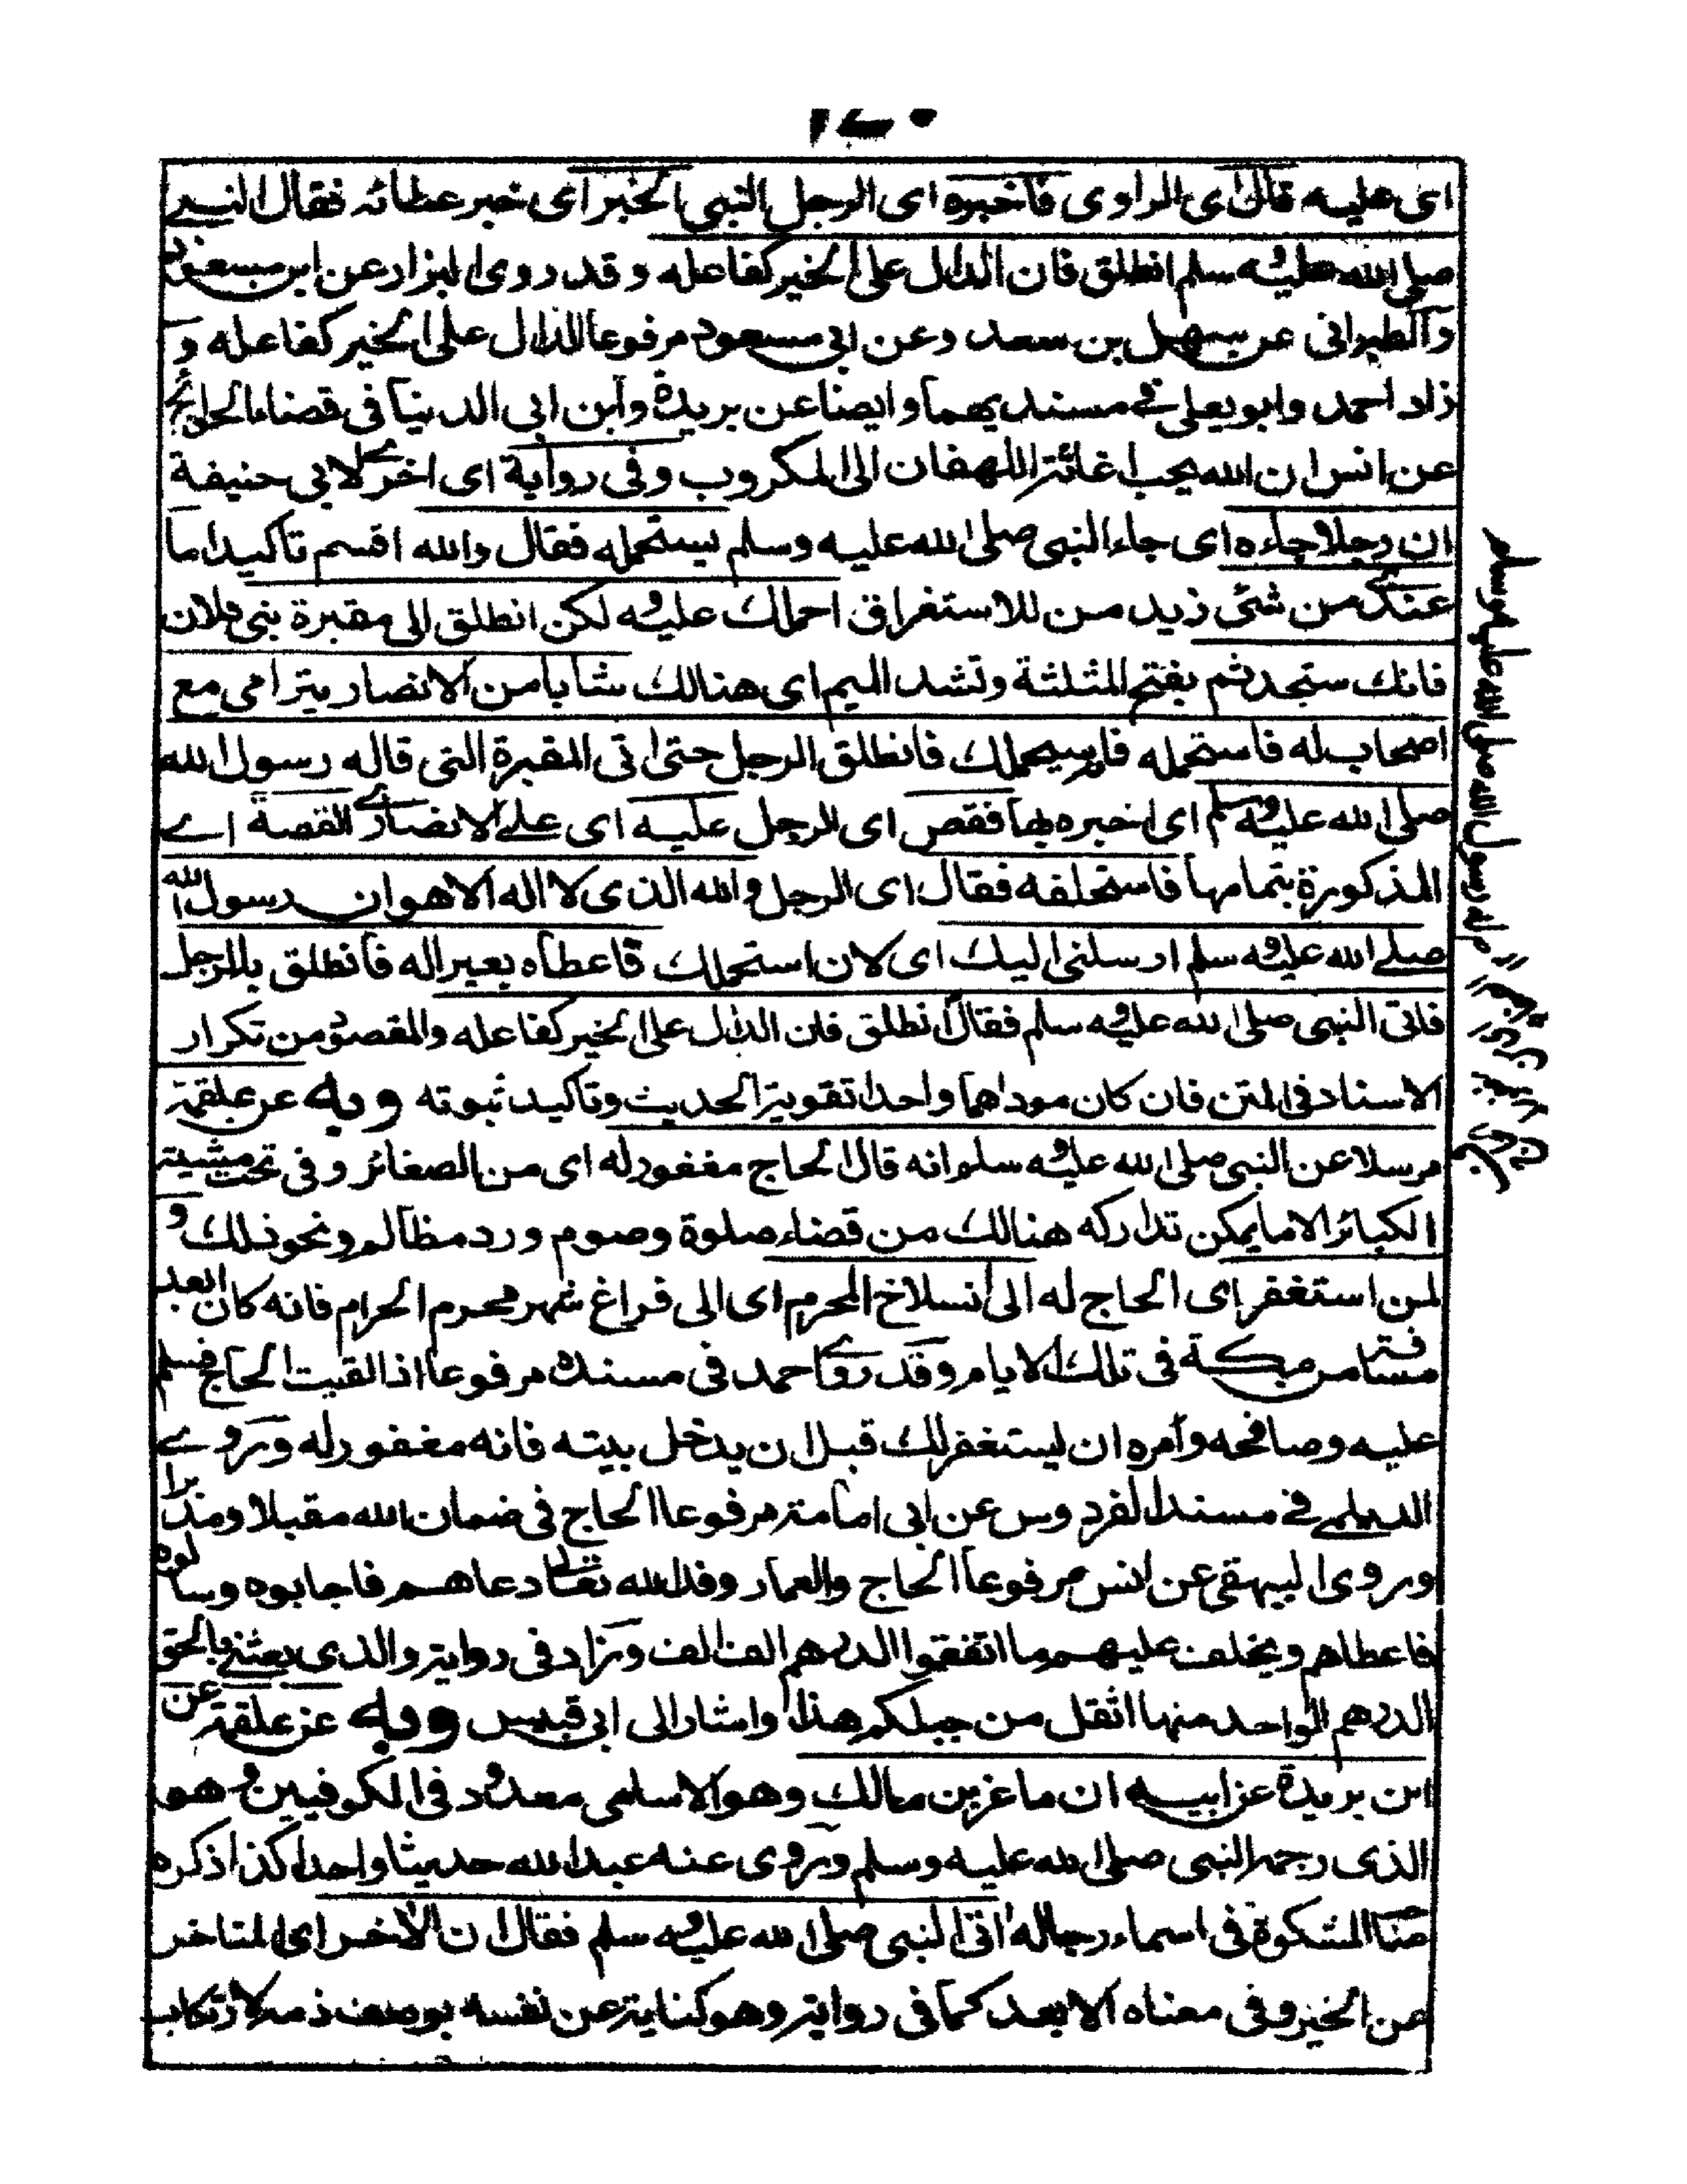 ١٧٠
اى عليه قال اى الراوى فاخبره اى الرجل النبى الخبر اى خبر عطائه فقال النبى
صلى الله عليه وسلم انطلق فان الدال على الخير كفاعله وقد روى البزار عن ابن مسعود
والطبرانى عن سهل بن سعد وعن ابى مسعود مرفوعا الدال على الخير كفاعله و
زاد احمد وابو يعلى فى مسنديهما وايضا عن بريدة وابن ابى الدنيا فى قضاء الحوائج
عن انس ان الله يحب اغاثة اللهفان اى المكروب وفى رواية اى اخرى لابى حنيفة
ان رجلا جاءه اى جاء النبى صلى الله عليه وسلم يستحمله فقال والله اقسم تاكيدا ما
عندى من شئى زيد من للاستغراق احملك عليه ولكن انطلق الى مقبرة بنى فلان
فانك ستجد ثم بفتح المثلثة وتشد الميم اى هنالك شابا من الانصار يترامى مع
اصحاب له فاستحمله فانه سيحملك فانطلق الرجل حتى اتى المقبرة التى قاله رسول الله
صلى الله عليه وسلم اى اخبره بها فقص اى الرجل عليه اى على الانصارى القصة اى
المذكورة بتمامها فاستحلفه فقال اى الرجل والله الذى لا اله الا هو ان رسول الله
صلى الله عليه وسلم ارسلنى اليك اى لان استحملك فاعطاه بعيرا له فانطلق بالرجل
فاتى النبى صلى الله عليه وسلم فقال انطلق فان الدال على الخير كفاعله والمقصود من تكرار
الاسناد فى المتن فان كان موداهما واحدا تقوية الحديث وتاكيد ثبوته وبه عن علقمة
مرسلا عن النبى صلى الله عليه وسلم انه قال الحاج مغفور له اى من الصغائر وفى تحت مشيته
الكبائر الا ما يمكن تداركه هنالك من قضاء صلوة وصوم ورد مظالم ونحو ذلك و
لمن استغفر اى الحاج له الى انسلاخ المحرم اى الى فراغ شهر محرم الحرام فانه كان ابعد
مسافة من مكة فى تلك الايام وقد روى احمد فى مسنده مرفوعا اذا لقيت الحاج فسلم
عليه وصافحه وأمره ان يستغفر لك قبل ان يدخل بيته فانه مغفور له وروى
الديلمى فى مسند الفردوس عن ابى امامة مرفوعا الحاج فى ضمان الله مقبلا ومدبرا
وروى البيهقى عن انس مرفوعا الحاج والعمار وفد الله تعالى دعاهم فاجابوه وسألوه
فاعطاهم ويخلف عليهم ما انفقوا الدرهم الف الف وزاد فى رواية والذى بعثنى بالحق
الدرهم الواحد منها اثقل من جبلكم هذا واشار الى ابى قبيس وبه عن علقمة عن
ابن بريدة عن ابيه ان ماعز بن مالك وهو الاسلمى معدود فى الكوفيين وهو
الذى رجمه النبى صلى الله عليه وسلم وروى عنه عبد الله حديثا واحدا كذا ذكره
صاحب المشكوة فى اسماء رجاله اتى النبى صلى الله عليه وسلم فقال ان الاخر اى المتاخر
عن الخير وفى معناه الابعد كما فى رواية وهو كناية عن نفسه بوصف ذمه لارتكاب
قوله رسول الله صلى الله عليه وسلم